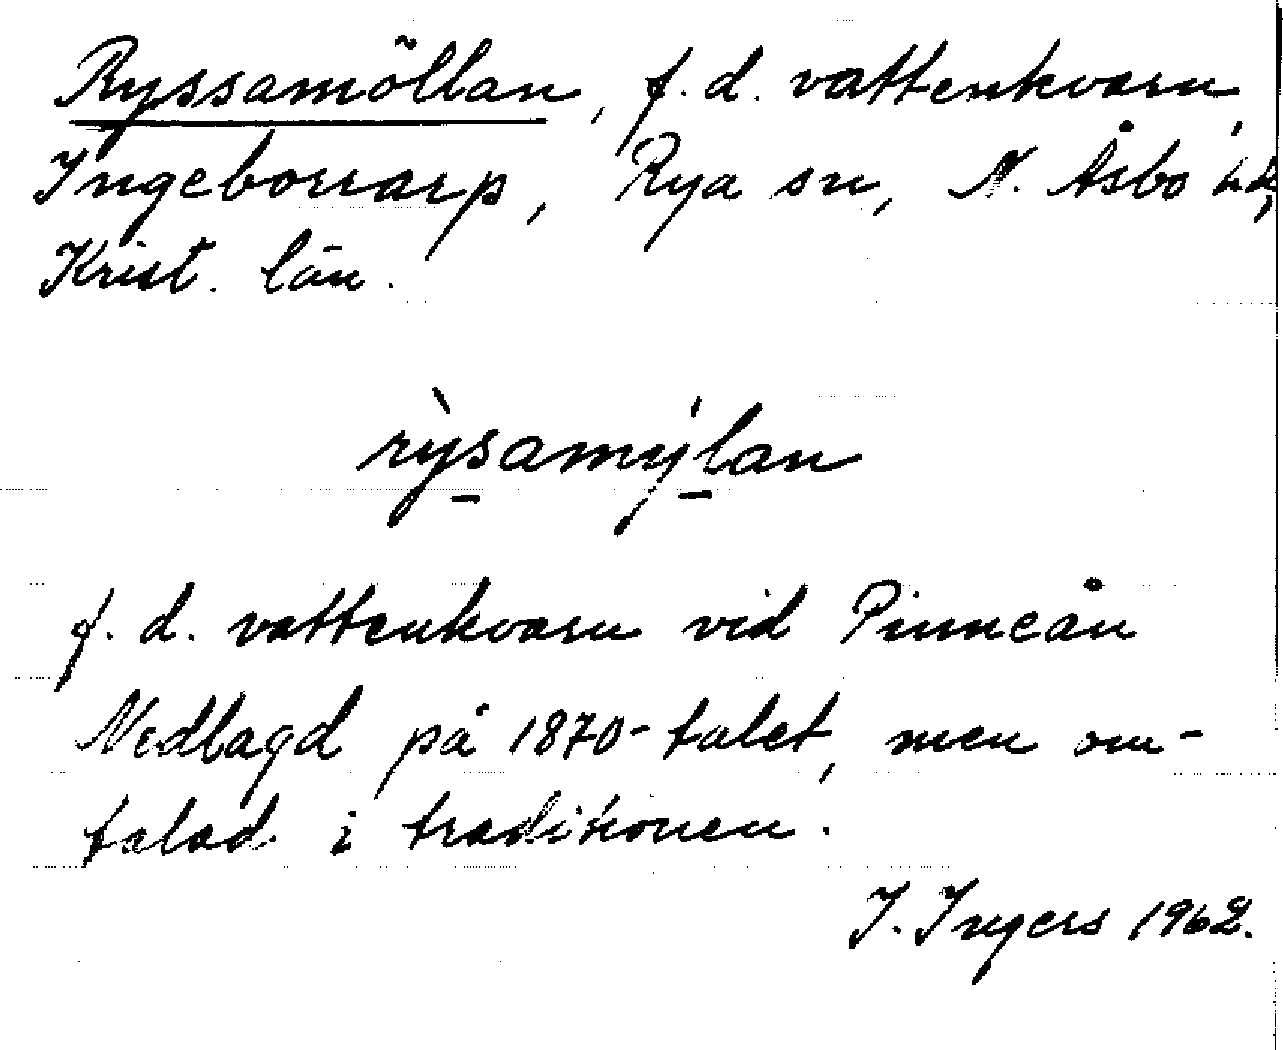 Ryssamöllan, f.d. vattenkvarn,
Ingeborrarp, Rya sn, N. Åsbo hd,
Krist. län.
rỳsamýlan
f. d. vattenkvarn vid Pinneån
Nedlagd på 1870-talet, men om-
talad i traditionen.
I. Ingers 1962.